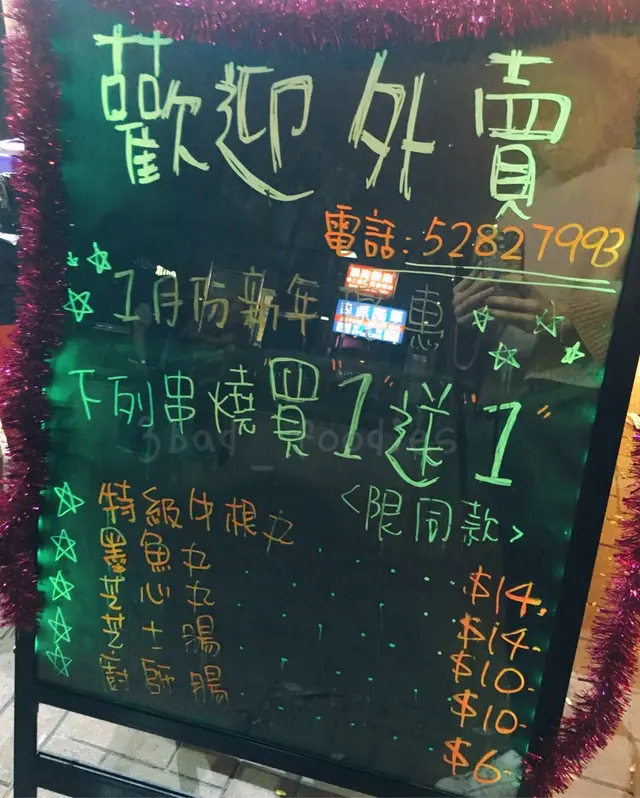 歡迎外賣
電話: 52827993
1月份新年優惠
下列串燒買"1"送"1"
3bad_foodies
<限同款>
☆特級牛根丸 $14.
☆墨魚丸 $14.
☆芝心丸 $10.
☆芝士腸 $10.
☆廚師腸 $6.